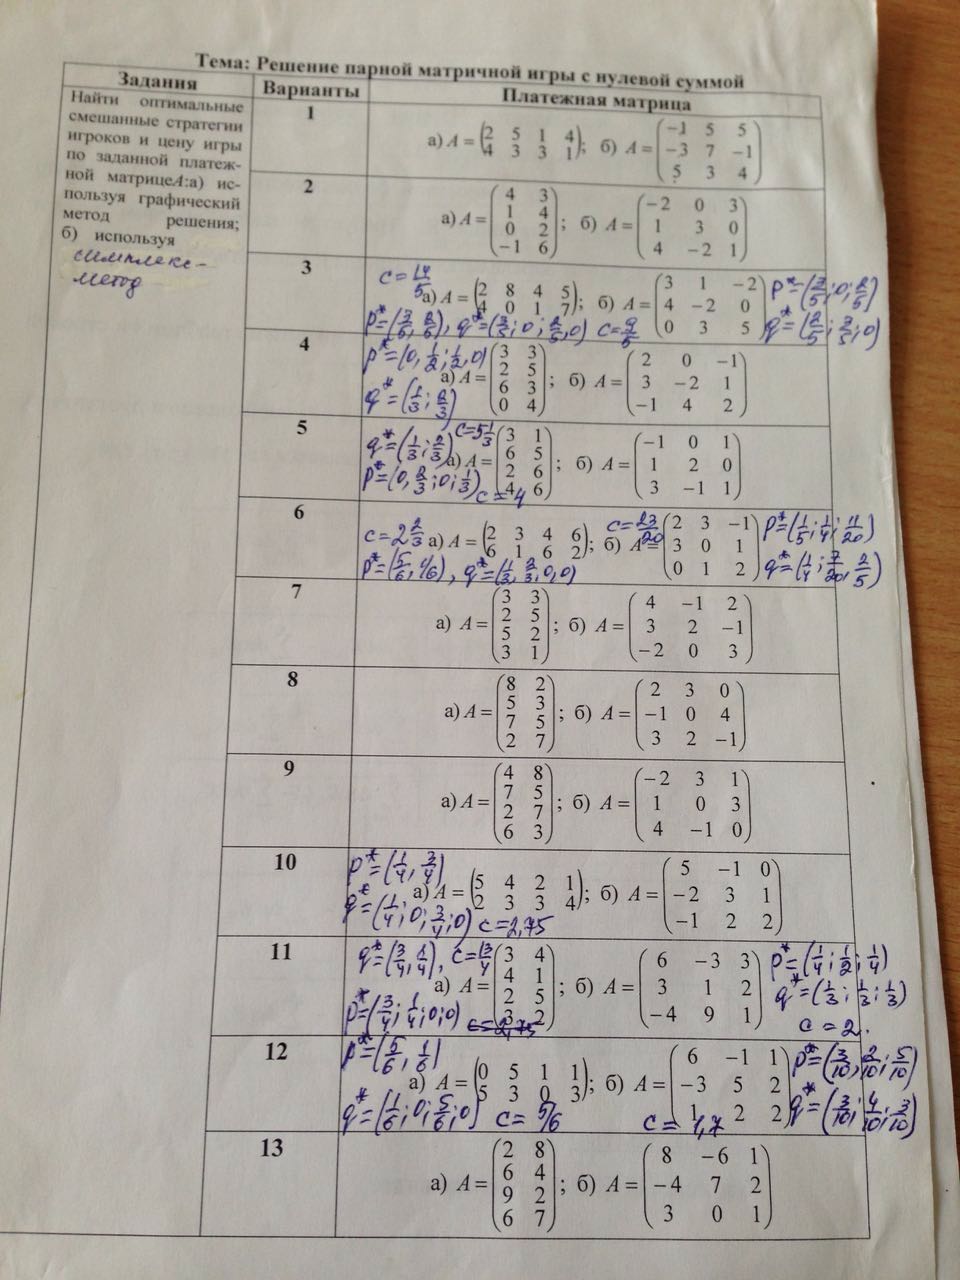 Тема: Решение парной матричной игры с нулевой суммой
Задания Варианты Платежная матрица
Найти оптимальные
смешанные стратегии
игроков и цену игры
по заданной платеж-
ной матрицеA:а) ис-
пользуя графический
метод решения;
б) используя
симплекс-
метод
1
а) A = (2 5 1 4
4 3 3 1); б) A = (−1 5 5
−3 7 −1
5 3 4)
2
а) A = (4 3
1 4
0 2
−1 6); б) A = (−2 0 3
1 3 0
4 −2 1)
3
c = 14/5
а) A = (2 8 4 5
4 0 1 7); б) A = (3 1 −2
4 −2 0
0 3 5)
q* = (3/5; 0; 2/5, 0) c = 9/5
p* = (3/5; 0; 2/5)
q* = (2/5; 3/5; 0)
4
p* = (0, 1/2; 1/2, 0)
q* = (1/3; 2/3)
а) A = (3 3
2 5
6 3
0 4); б) A = (2 0 −1
3 −2 1
−1 4 2)
c = 4
5
q* = (1/3; 2/3) c = 5 1/3
p* = (0, 2/3; 0; 1/3)
а) A = (3 1
6 5
2 6
4 6); б) A = (−1 0 1
1 2 0
3 −1 1)
6
c = 2 2/3 а) A = (2 3 4 6
6 1 6 2); б) A = (2 3 −1
3 0 1
0 1 2)
p* = (5/6, 1/6), q* = (1/3, 2/3, 0, 0)
c = 23/20
p* = (1/5; 1/4; 11/20)
q* = (1/4; 7/20, 2/5)
7
а) A = (3 3
2 5
5 2
3 1); б) A = (4 −1 2
3 2 −1
−2 0 3)
8
а) A = (8 2
5 3
7 5
2 7); б) A = (2 3 0
−1 0 4
3 2 −1)
9
а) A = (4 8
7 5
2 7
6 3); б) A = (−2 3 1
1 0 3
4 −1 0)
10
p* = (1/4, 3/4)
а) A = (5 4 2 1
2 3 3 4); б) A = (5 −1 0
−2 3 1
−1 2 2)
q* = (1/4; 0; 3/4; 0) c = 2,75
11
q* = (3/4, 1/4), c = 13/4
а) A = (3 4
4 1
2 5
3 2); б) A = (6 −3 3
3 1 2
−4 9 1)
p* = (3/4; 1/4; 0; 0) c = 2,75
p* = (1/4; 1/2; 1/4)
q* = (1/3; 1/3; 1/3)
c = 2.
12
p* = (5/6, 1/6)
а) A = (0 5 1 1
5 3 0 3); б) A = (6 −1 1
−3 5 2
1 2 2)
q* = (1/6; 0; 5/6; 0) c = 5/6 c = 1,7
p* = (3/10, 2/10; 5/10)
q* = (3/10; 4/10; 3/10)
13
а) A = (2 8
6 4
9 2
6 7); б) A = (8 −6 1
−4 7 2
3 0 1)